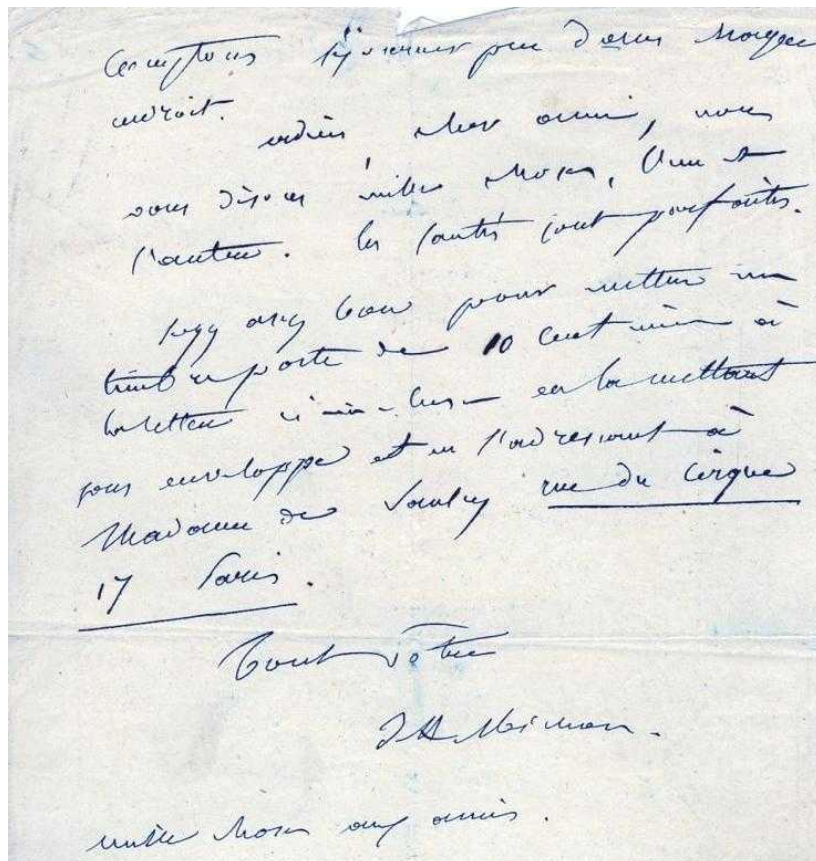 comptons séjourner peu dans chaque
endroit.
adieu cher ami, nous
vous disons mille choses, l'un et
l'autre. les santés sont parfaites.
soyez assez bon pour mettre un
timbre poste de 10 centimes à
la lettre ci-incluse en la mettant
sous enveloppe et en l'adressant à
Madame de Saulcy rue du Cirque
17 Paris.
Tout vôtre
mille choses aux amis.